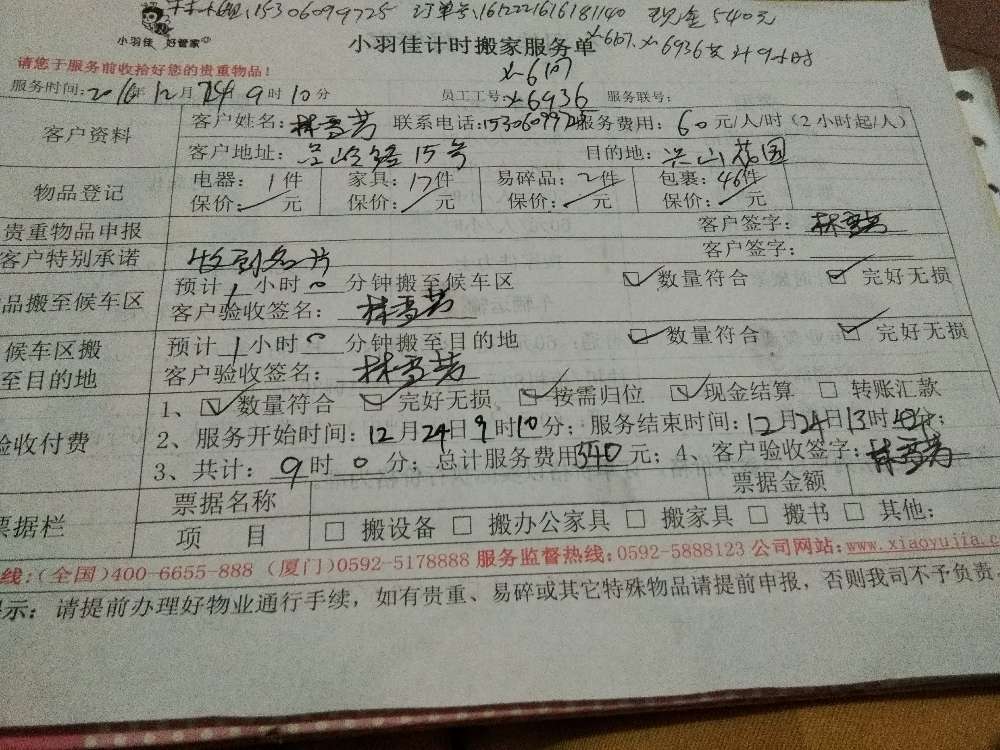 15306099725 订单号:1612221616181140 现金540元
小羽佳 好管家
小羽佳计时搬家服务单
请您于服务前收拾好您的贵重物品!
服务时间:2016年12月24日9时10分 员工工号:x6936 服务联号:
客户资料 客户姓名: 联系电话:15306099725 服务费用:60元/人/时(2小时起/人)
客户地址: 15号 目的地:兴山花园
物品登记 电器:1件 家具:17件 易碎品:2件 包裹:46件
保价: 元 保价: 元 保价: 元 保价: 元
贵重物品申报 客户签字:
客户特别承诺 收到名片 客户签字:
品搬至候车区 预计1小时0分钟搬至候车区 ☑数量符合 ☑完好无损
客户验收签名:
候车区搬至目的地 预计1小时0分钟搬至目的地 ☑数量符合 ☑完好无损
客户验收签名:
验收付费 1、☑数量符合 ☑完好无损 ☑按需归位 ☑现金结算 □转账汇款
2、服务开始时间:12月24日9时10分;服务结束时间:12月24日13时40分;
3、共计:9时0分;总计服务费用540元;4、客户验收签字:
票据栏 票据名称 票据金额
项目 □搬设备 □搬办公家具 □搬家具 □搬书 □其他:
线:(全国)400-6655-888 (厦门)0592-5178888 服务监督热线:0592-5888123 公司网站:www.xiaoyujia.c
示:请提前办理好物业通行手续,如有贵重、易碎或其它特殊物品请提前申报,否则我司不予负责.